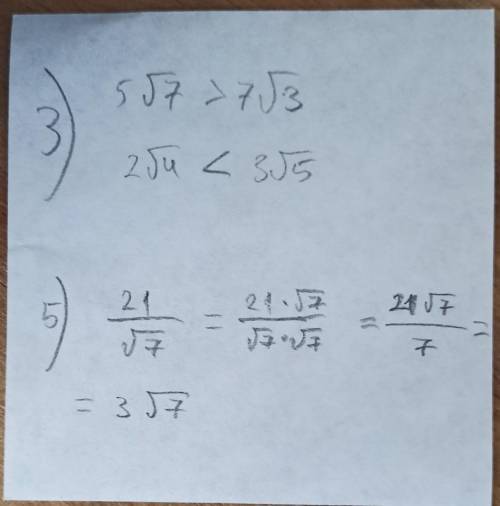 3) 5√7 > 7√3
2√4 < 3√5
5) 21/√7 = 21·√7/√7·√7 = 21√7/7 =
= 3√7